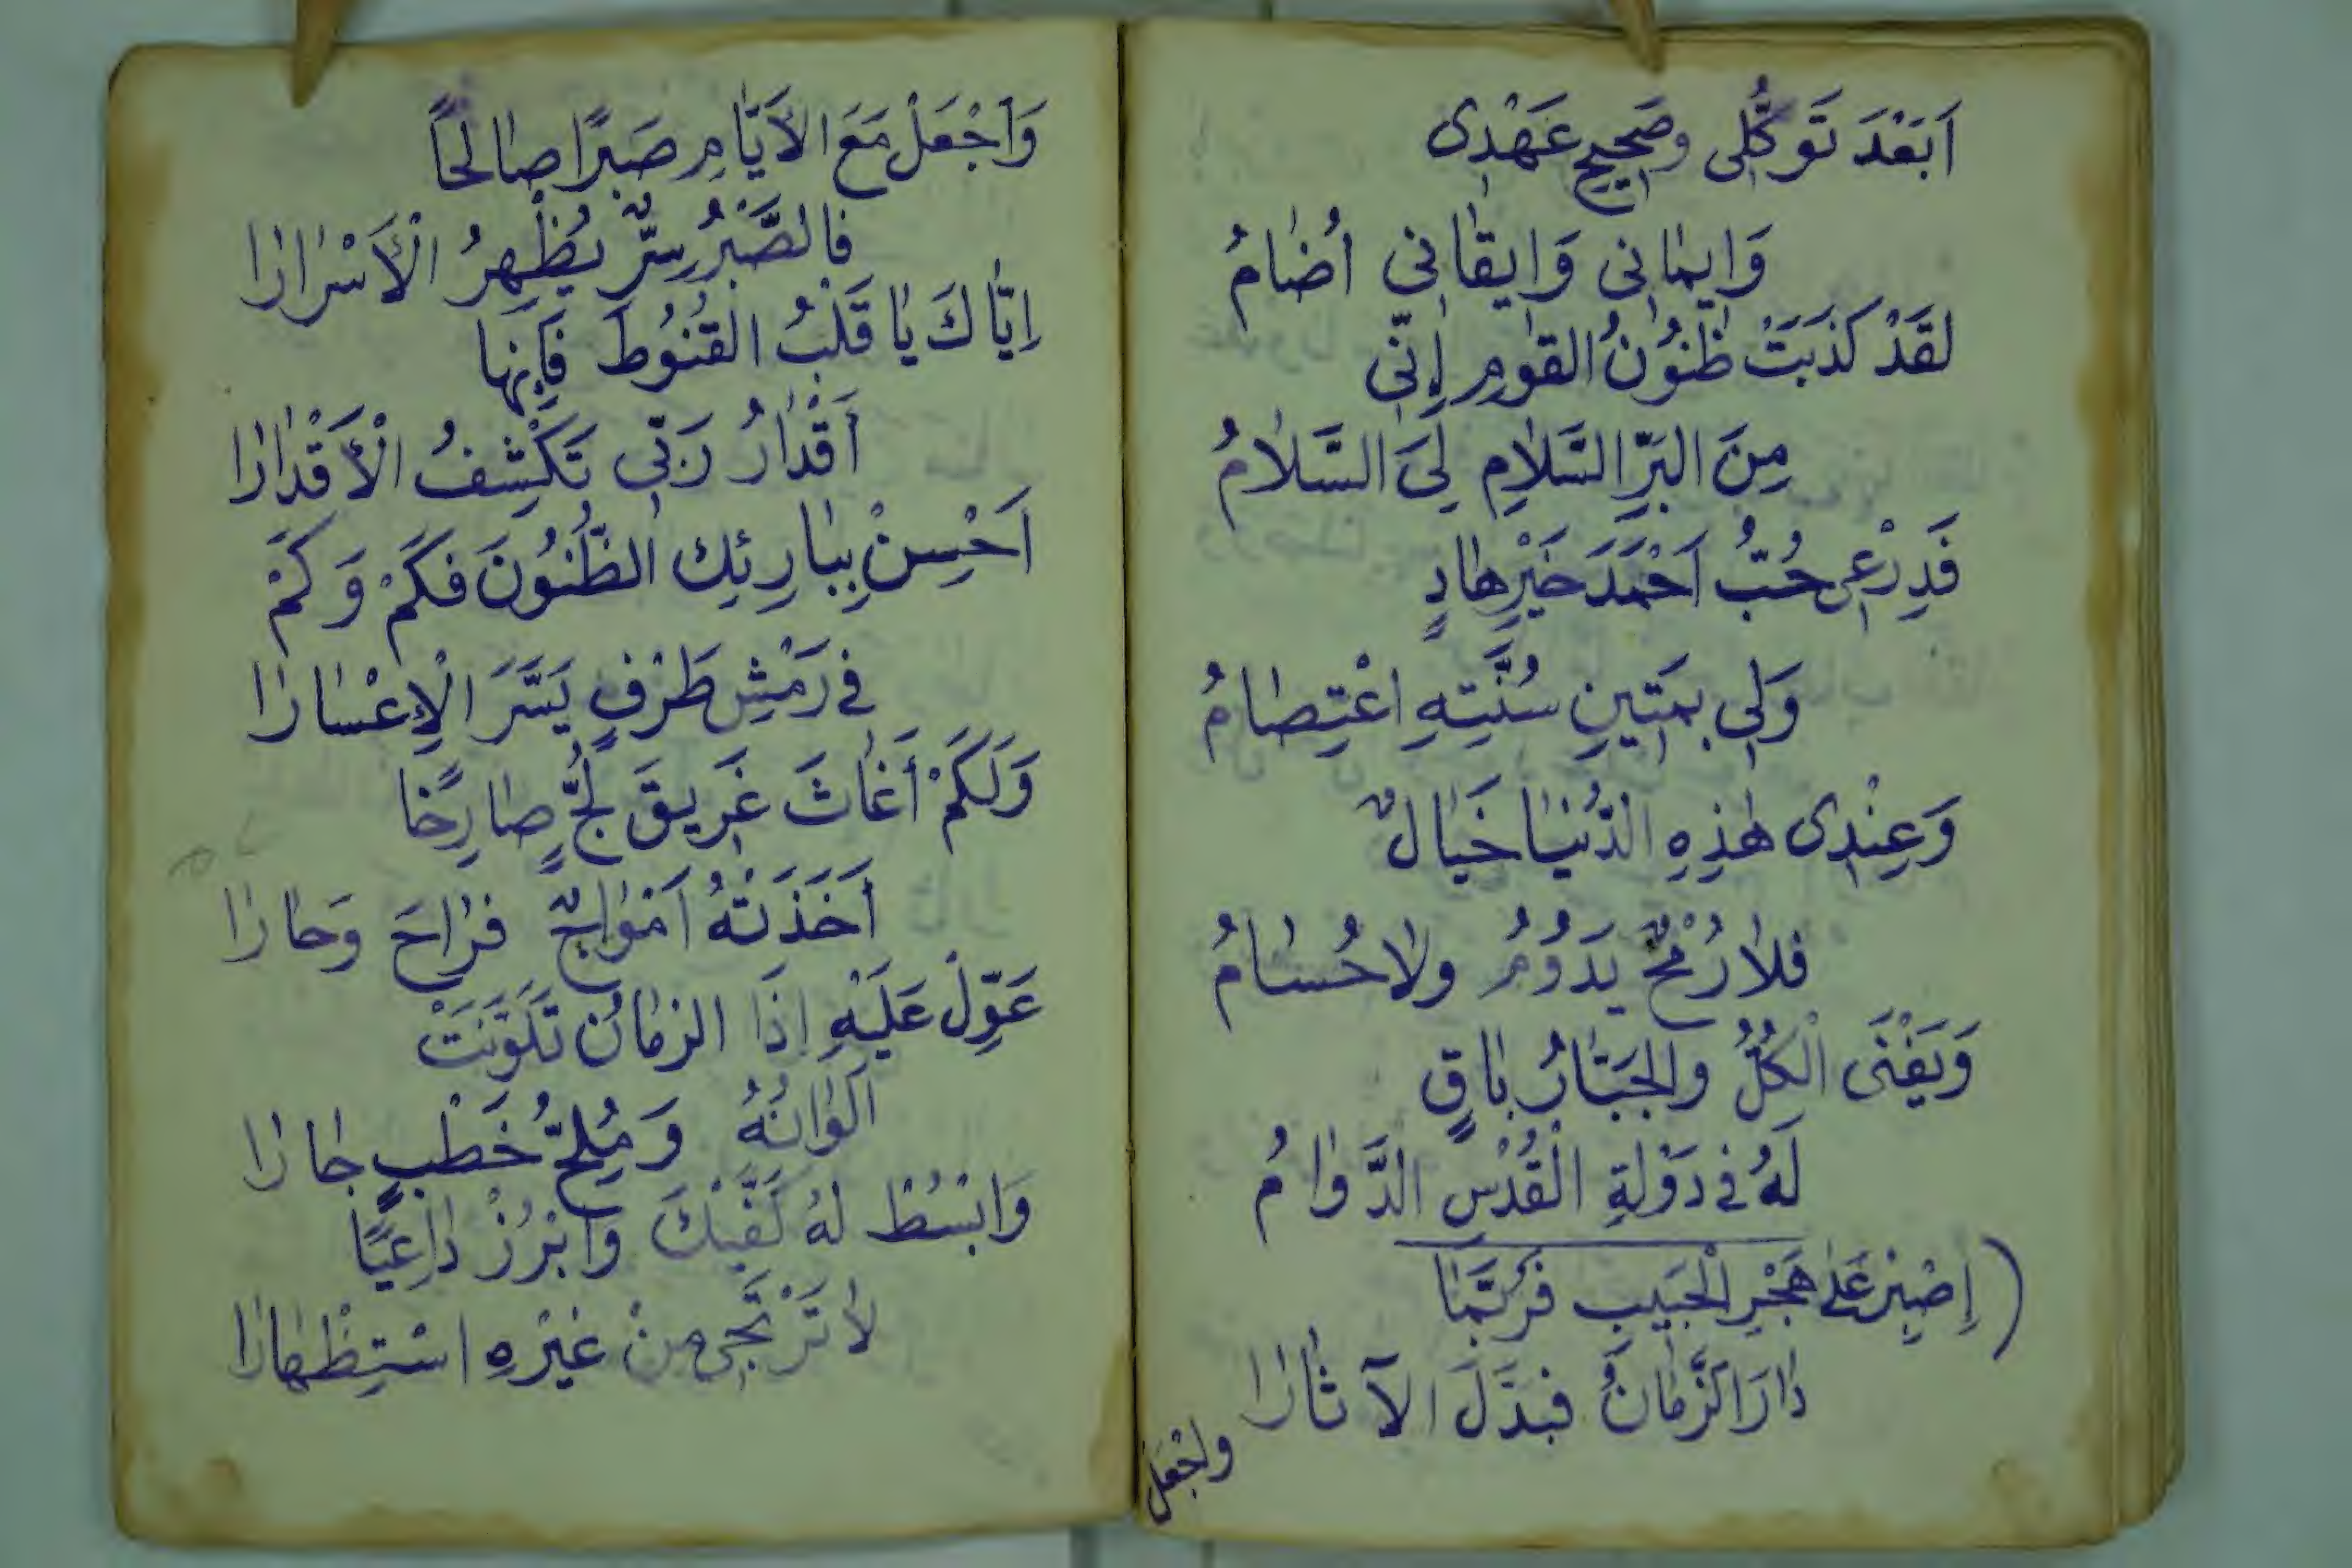 اَبَعْدَ تَوَكُّلِى وصَحِيحِ عَهْدِى
وَاِيمَانِى وَاِيقَانِى أُضَامُ
لَقَدْ كَذَبَتْ ظُنُونُ القَوْمِ اِنِّى
مِنَ البَرِّ السَّلَامِ لِيَ السَّلَامُ
فَدِرْعِى حُبُّ اَحْمَدَ خَيْرِ هَادٍ
وَلِى بِمَتِينِ سُنَّتِهِ اعْتِصَامُ
وَعِنْدِى هٰذِهِ الدُّنْيَا خَيَالٌ
فَلَا رُمْحٌ يَدُوُمُ ولَا حُسَامُ
وَيَفْنَى الْكُلُّ والجَبَّارُ بَاقٍ
لَهُ فى دَوْلَةِ الْقُدْسِ الدَّوَامُ
(اِصْبِرْ عَلَى هَجْرِ الْحَبِيبِ فَرُبَّمَا
دَارَ الزَّمَانُ فَبَدَّلَ الآثَارَا
واجْعَلْ
وَاجْعَلْ مَعَ الاَيَّامِ صَبْرًا صَالِحًا
فَالصَّبْرُ سِرٌّ يُظْهِرُ الْأَسْرَارَا
اِيَّاكَ يَا قَلْبُ القُنُوطَ فَاِنَّهَا
أَقْدَارُ رَبِّى تَكْشِفُ الْأَقْدَارَا
اَحْسِنْ بِبَارِئِك الظُّنُونَ فَكَمْ وَكَمْ
فى رَمْشِ طَرْفٍ يَسَّرَ الْاِعْسَارَا
وَلَكَمْ أَغَاثَ غَرِيقَ لُجٍّ صَارِخًا
أَخَذَتْهُ اَمْوَاجٌ فَرَاحَ وَحَارَا
عَوِّلْ عَلَيْهِ اِذَا الزمَانُ تَلَوَّنَتْ
اَلْوَانُهُ وَمُلِحُّ خَطْبٍ جَارَا
وَابْسُطْ لَهُ كَفَّيْكَ وَابْرُزْ دَاعِيًا
لَا تَرْتَجِى مِنْ غَيْرِهِ اسْتِظْهَارَا